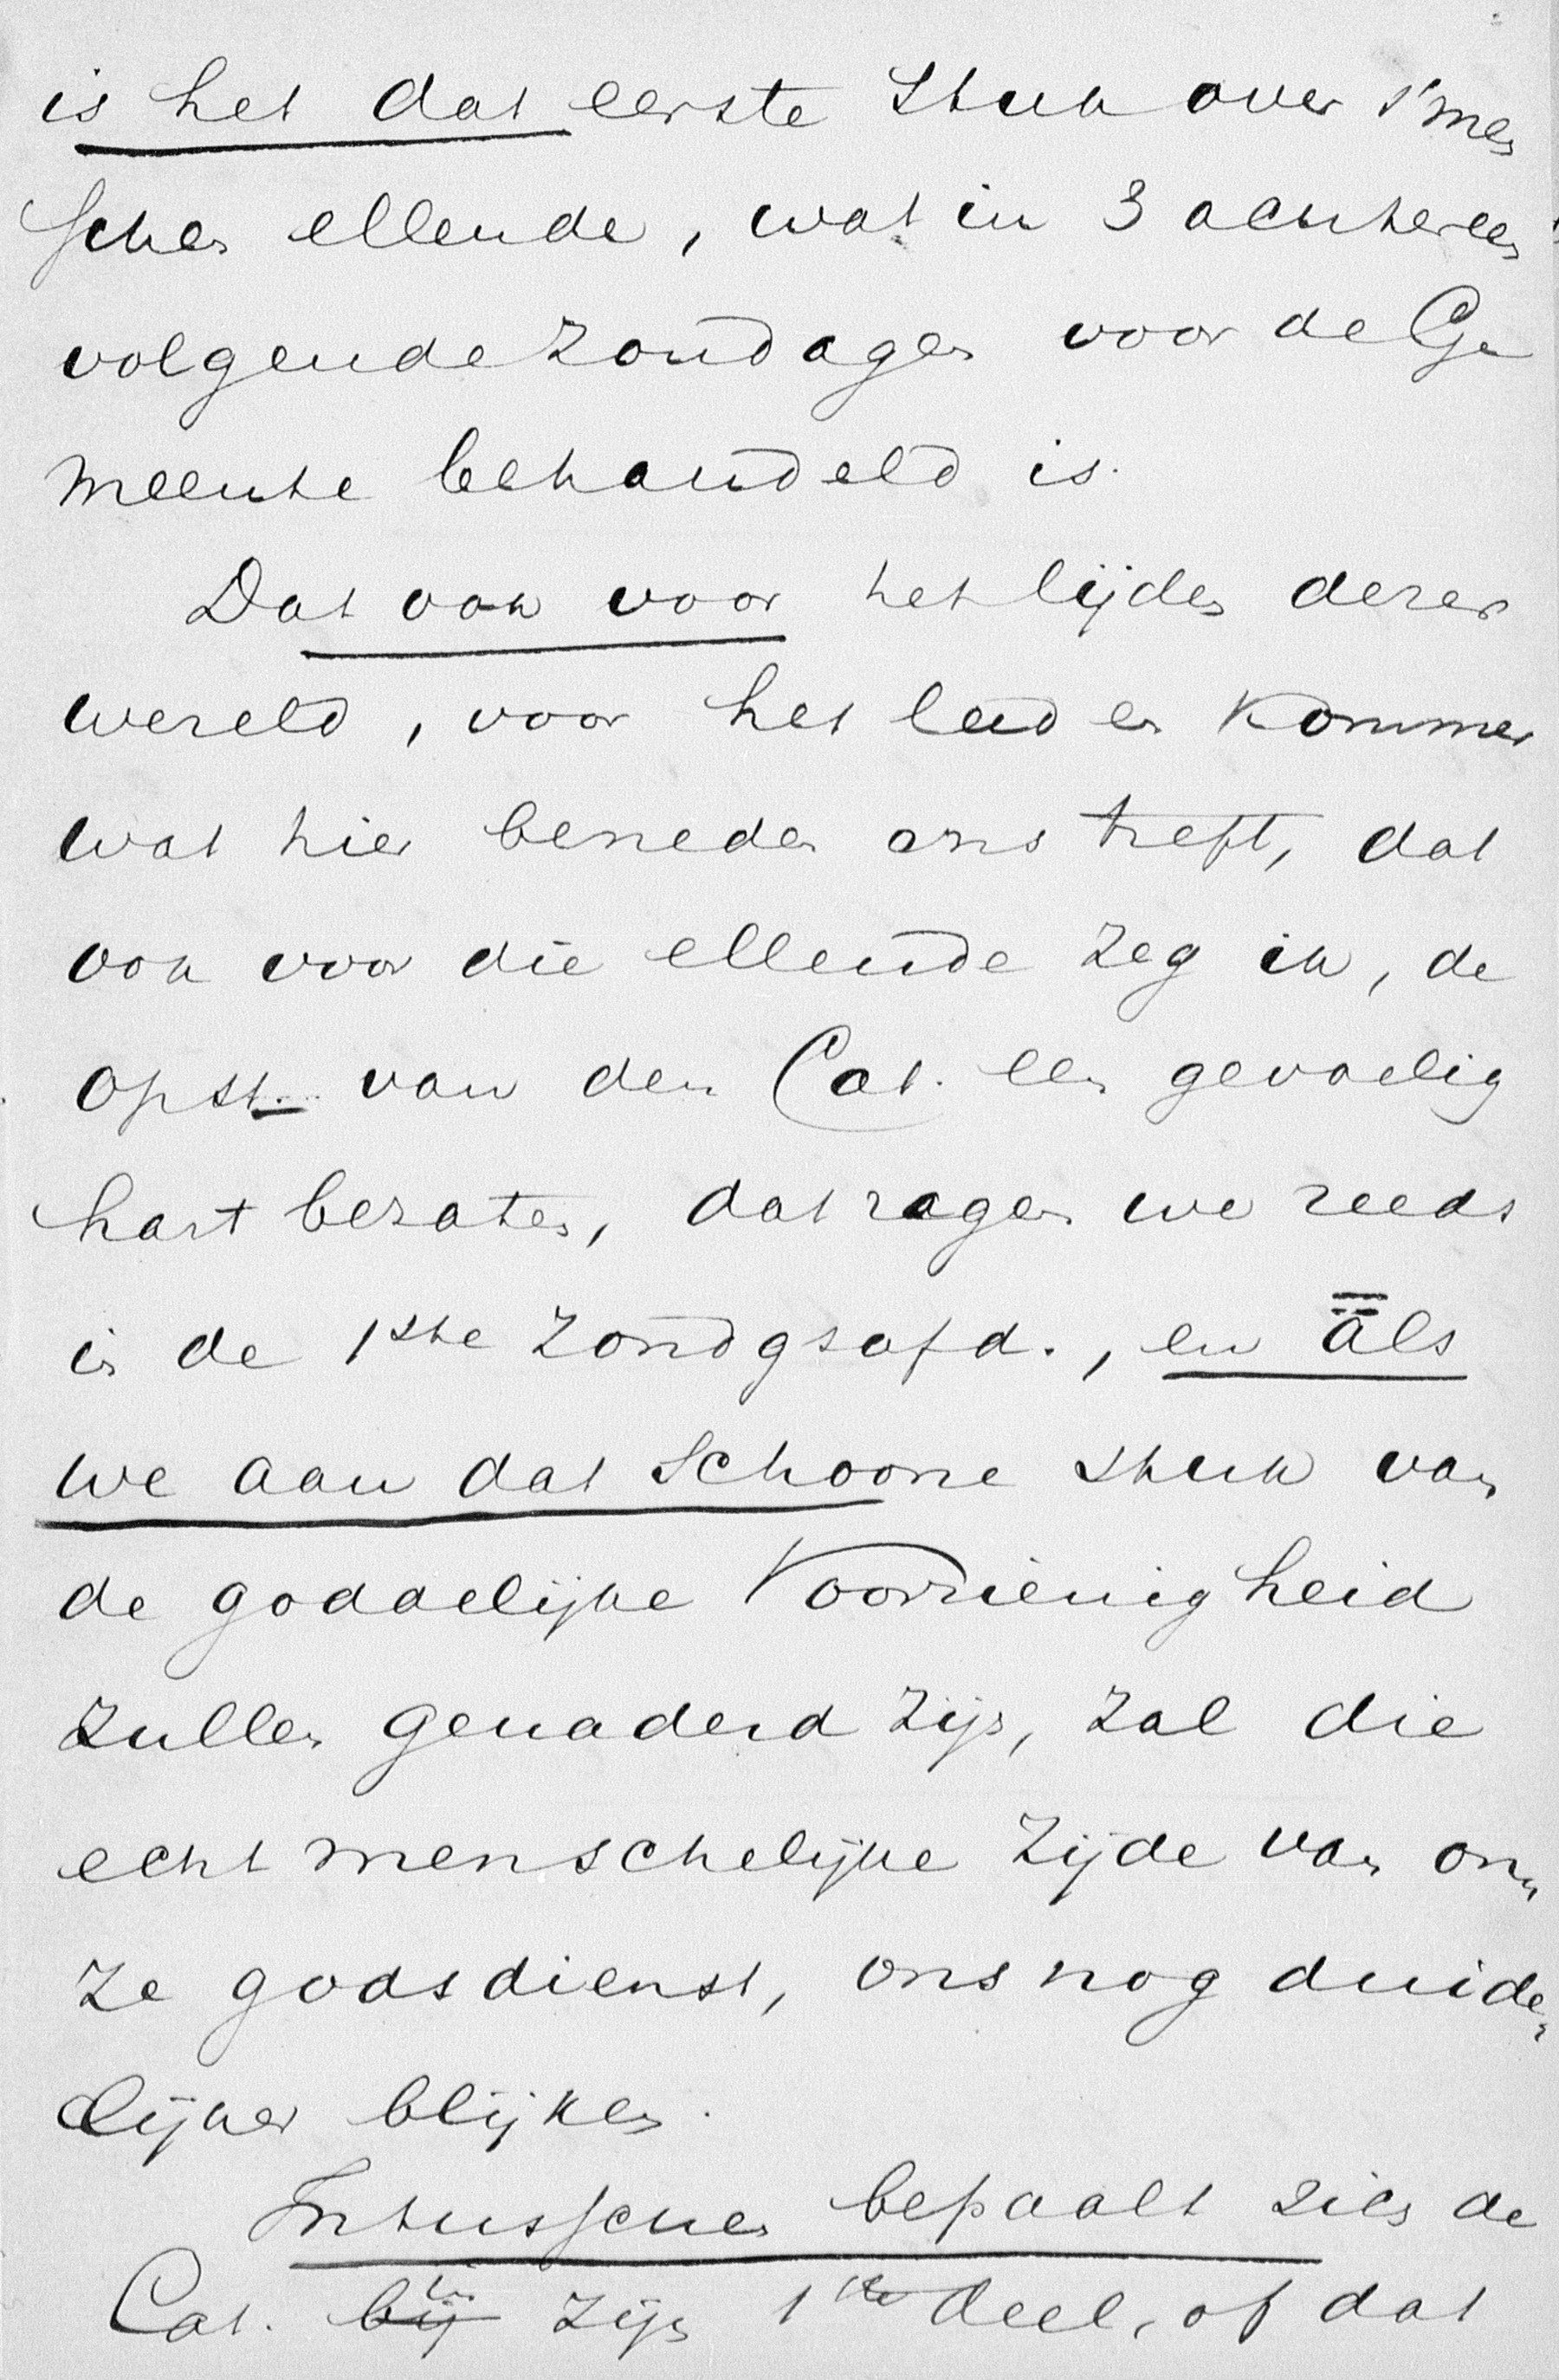 is het dat eerste stuk over s'men
schen ellende, wat in 3 achtereen
volgende Zondagen voor de Ge
meente behandeld is.
Dat ook voor het lijden dezer
wereld, voor het leed en kommer
wat hier beneden ons treft, dat
ook voor die ellende zeg ik, de
opst. van den Cat. een gevoelig
hart bezaten, dat zagen we reeds
in de 1ste Zondgsafd., en als
we aan dat schoone stuk van
de goddelijke Voorzienigheid
zullen genaderd zijn, zal die
echt menschelijke zijde van on„
ze godsdienst, ons nog duide„
lijker blijken.
Intusschen bepaalt zich de
Cat. bij in zijn 1ste deel, of dat